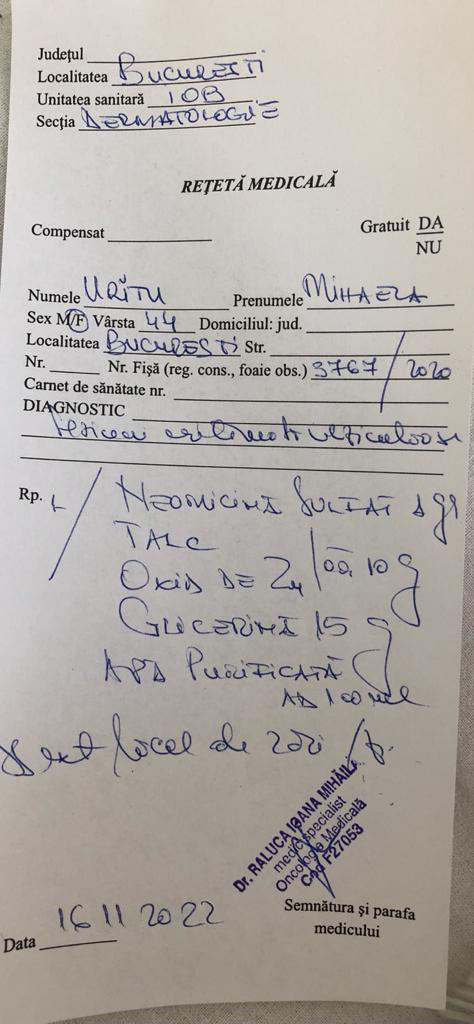 Județul
Localitatea BUCUREȘTI
Unitatea sanitară IOB
Secția DERMATOLOGIE
REȚETĂ MEDICALĂ
Compensat
Gratuit DA
NU
Numele URÎTU Prenumele MIHAELA
Sex M/F Vârsta 44 Domiciliul: jud.
Localitatea BUCUREȘTI Str.
Nr. Nr. Fișă (reg. cons., foaie obs.) 3767 / 2020
Carnet de sănătate nr.
DIAGNOSTIC
Rp. NEOMICINĂ SULFAT
TALC
OXID DE Zn āā 10 g
GLICERINĂ 15 g
APĂ PURIFICATĂ
AD 100 ml
local de 2 ori /
Dr. RALUCA IOANA MIHĂILĂ
medic specialist
Oncologie Medicală
Cod F27053
Semnătura și parafa
medicului
Data 16 11 2022